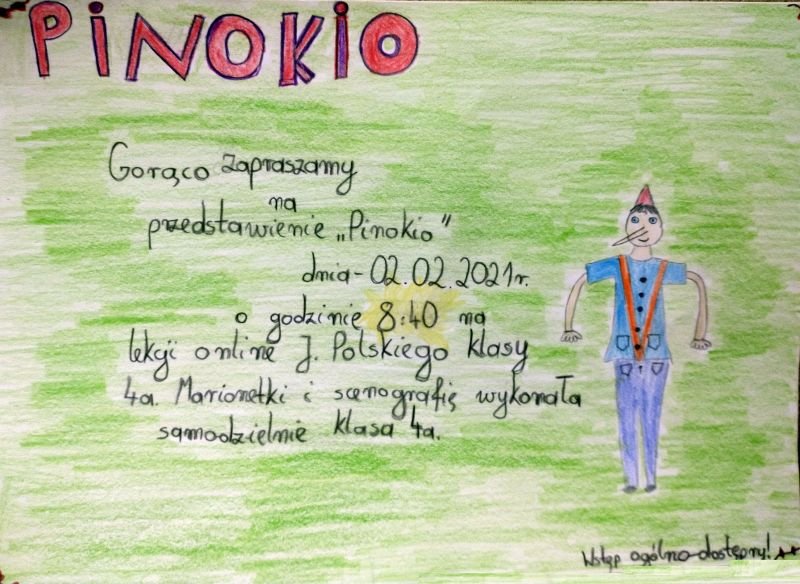 PiNOKiO
Gorąco zapraszamy
na
przedstawienie „Pinokio”
dnia - 02.02.2021r.
o godzinie 8:40 na
lekcji online J. Polskiego klasy
4a. Marionetki i scenografię wykonała
samodzielnie klasa 4a.
Wstęp ogólno-dostępny!